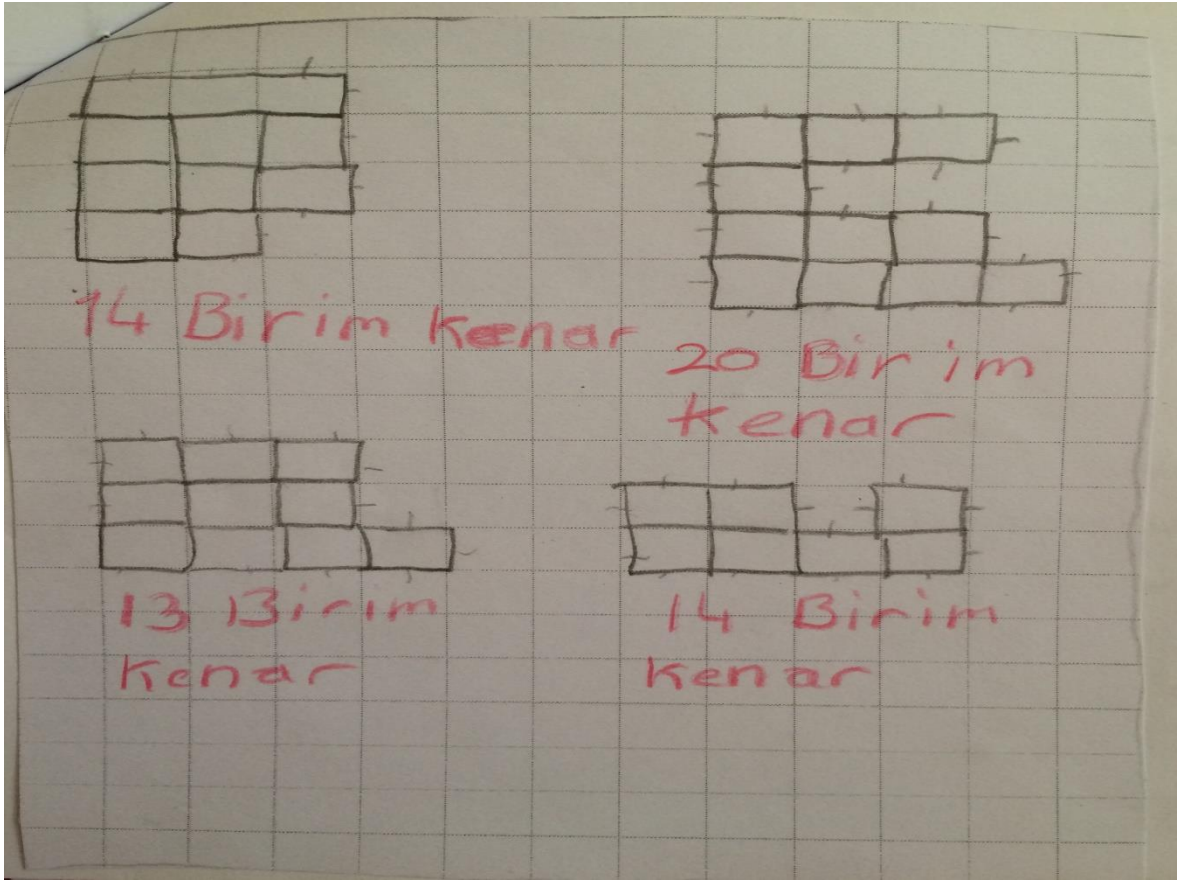 14 Birim Kenar
20 Birim
Kenar
13 Birim
Kenar
14 Birim
Kenar